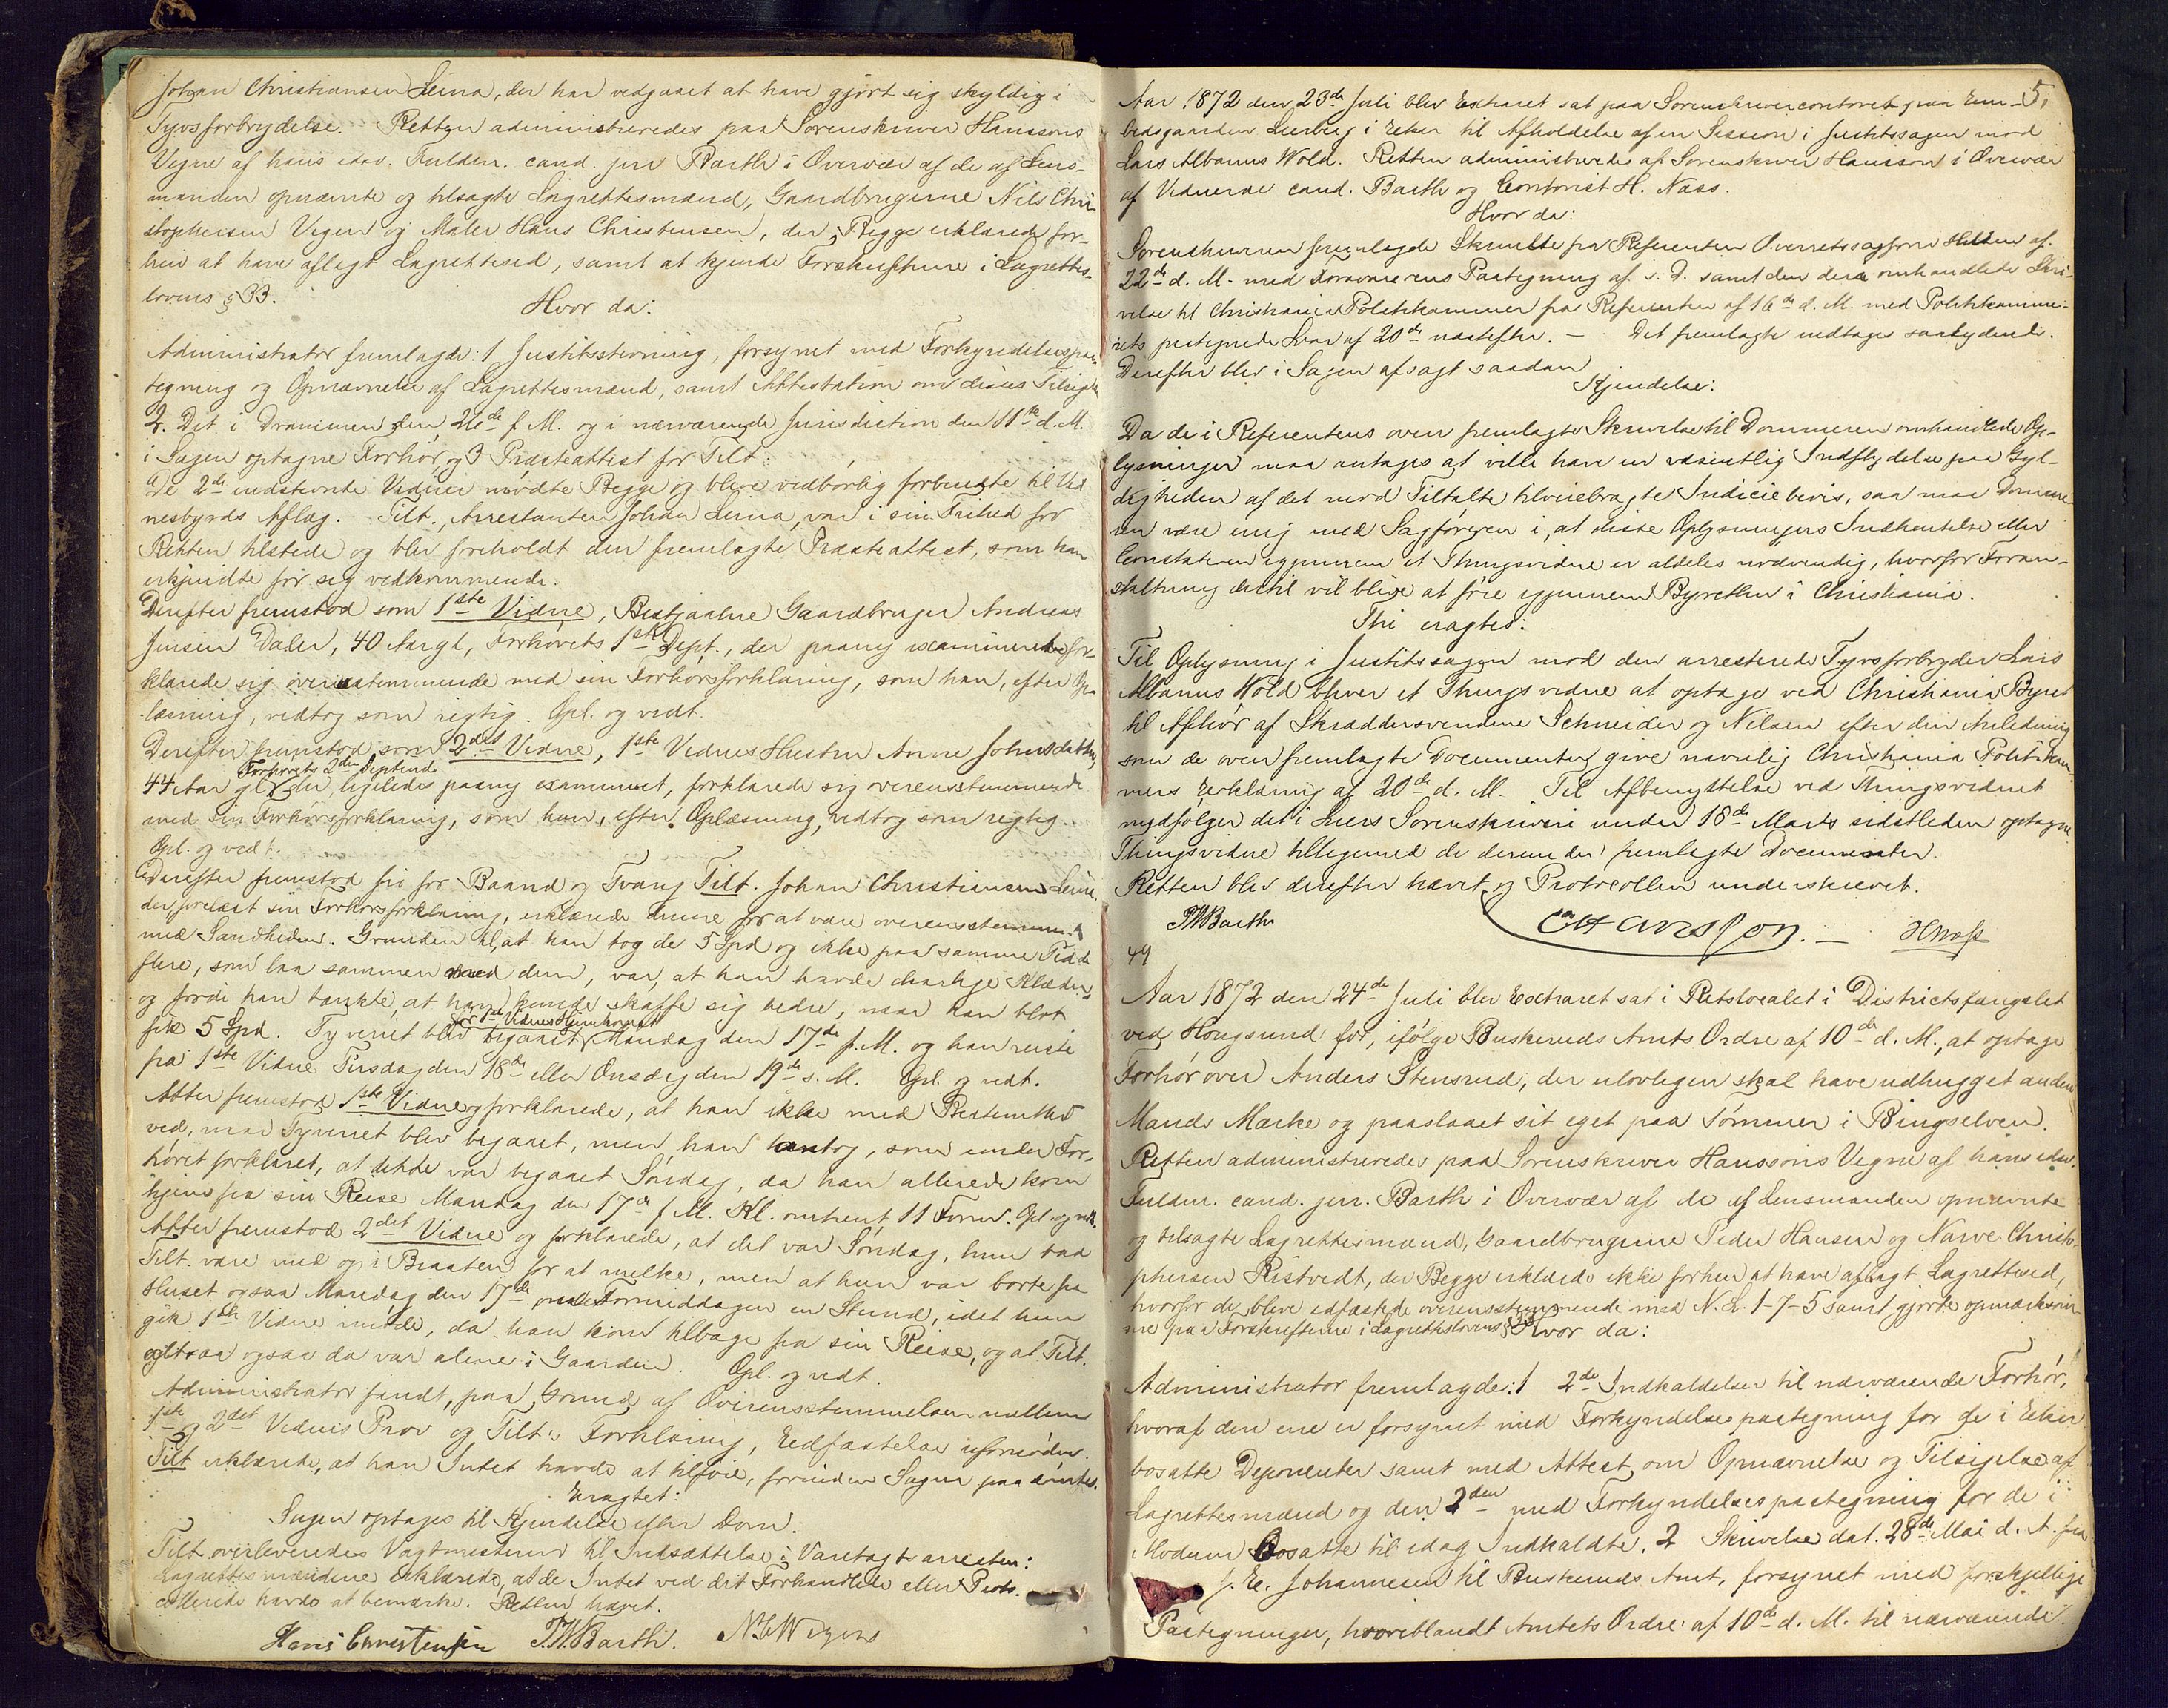 Johan Christiansen Leina, der har vedgaaet at have gjørt sig skyldig i
Tyvsforbrydelse. Retten administreredes paa Sorenskriver Hanssons
Vegne af hans edsv. Fuldm. cand. jur Barth i Overvær af de af Lens-
manden opnævnte og tilsagte Lagrettesmænd, Gaardbrugerne Nils Chri
stophersen Vegen og Maler Hans Christensen, der Begge erklærede for-
hen at have aflagt Lagrettesed, samt at kjende Forskrifterne i Lagrettes-
lovens § 33.
Hvor da:
Administrator fremlagde: 1 Justitsstevning, forsynet med Forkyndelsespaa
tegning og Opnævnelse af Lagrettesmænd, samt Attestation om disses Tilsigelse
2. Det i Drammen den 26de f. M. og i nærværende Jurisdiction den 11te d. M.
i Sagen optagne Forhør, og 3 Præsteattest for Tilt.
De 2de indstevnte Vidner mødte Begge og bleve vedbørlig forberedte til Vid
nesbyrds Aflæg. Tilt., Arrestanten Johan Leina, var i sin Frihed for
Retten tilstede og blev foreholdt den fremlagte Præsteattest, som han
erkjendte for sig vedkommende.
Derefter fremstod som 1ste Vidne, Bestjaalne Gaardbruger Andreas
Jensen Dalen, 40 Aar gl, Forhørets 1ste Dept., der paany examineret for-
klarede sig overensstemmende med sin Forhørsforklaring, som han, efter Op-
læsning, vedtog som rigtig. Opl. og vedt.
Derefter fremstod som 2det Vidne, 1ste Vidnes Hustru Anne Johnsdatter,
Forhørets 2den Deptinde
44 Aar gl, der, ligeledes paany examineret, forklarede sig overensstemmende
med sin Forhørsforklaring, som hun, efter Oplæsning, vedtog som rigtig.
Opl. og vedt.
Derefter fremstod fri for Baand og Tvang Tilt. Johan Christiansen Leina,
der forelæst sin Forhørsforklaring, erklærede denne for at være overensstemmende
med Sandheden. Grunden til, at han tog de 5 Spd og ikke paa samme Tid de
flere, som laa sammen med dem, var, at han havde daarlige Klæder,
og fordi han tænkte, at han kunde skaffe sig bedre, naar han blot
før 1ste Vidnes Hjemkomst
fik 5 Spd. Tyveriet blev begaaet Mandag den 17de f. M. og han reiste
fra 1ste Vidne Tirsdag den 18de eller Onsdag den 19de s. M. Opl. og vedt.
Atter fremstod 1ste Vidne og forklarede, at han ikke med Bestemthed
ved, naar Tyveriet blev begaaet, men han antog, som under For-
høret forklaret, at dette var begaaet Søndag, da han allerede kom
hjem fra sin Reise Mandag den 17de f. M. Kl. omtrent 11 Form. Opl. og vedt.
Atter fremstod 2det Vidne og forklarede, at det var Søndag, hun bad
Tilt. være med op i Braaten for at melke, men at hun var borte fra
Huset ogsaa Mandag den 17de om Formiddagen en Stund, idet hun
gik 1ste Vidne imøde, da han kom tilbage fra sin Reise, og at Tilt.
altsaa ogsaa da var alene i Gaarden. Opl. og vedt.
Administrator fandt, paa Grund af Overensstemmelsen mellem
1ste og 2det Vidnes Prov og Tilt's Forklaring, Eedfæstelse ufornøden.
Tilt erklærede, at han Intet havde at tilføie, forinden Sagen paadømtes.
Eragtet:
Sagen optages til Kjendelse eller Dom.
Tilt overleveredes Vagtmesteren til Indsættelse i Varetægtsarresten.
Lagrettesmændene erklærede, at de Intet ved det Forhandlede eller Proto-
collerede havde at bemærke. Retten hævet.
Hans Christensen T.W.Barth. N C Wegen
5.
Aar 1872 den 23de Juli blev Extraret sat paa Sorenskrivercontoret paa Em-
bedsgaarden Lerberg i Eker til Afholdelse af en Session i Justitssagen mod
Lars Albanus Wold. Retten administreredes af Sorenskriver Hansson i Overvær
af Vidnerne cand. Barth og Contorist H. Næss.
Hvor da:
Sorenskriveren fremlagde Skrivelse fra Referenten Overretssagfører Helsen af
22de d. M. med Forsvarerens Paategning af s. D. samt den deri omhandlede Skri-
velse til Christiania Politikammer fra Referenten af 16de d. M. med Politikamme-
rets paategnede Svar af 20de næstefter. — Det fremlagte indtages saalydende.
Derefter blev i Sagen afsagt saadan
Kjendelse:
Da de i Referentens oven fremlagte Skrivelse til Dommeren omhandlede Op-
lysninger maa antages at ville have en væsentlig Indflydelse paa Gyl-
digheden af det mod Tiltalte tilveiebragte Indiciebevis, saa maa Domme-
ren være enig med Sagføreren i, at disse Oplysningers Indhentelse eller
Constateren igjennem et Thingsvidne er aldeles nødvendig, hvorfor Foran-
staltning dertil vil blive at føie igjennem Byretten i Christiania.
Thi eragtes:
Til Oplysning i Justitssagen mod den arresterede Tyvsforbryder Lars
Albanus Wold bliver et Thingsvidne at optage ved Christiania Byret
til Afhør af Skræddersvendene Schneider og Nilsen efter den Anledning
som de oven fremlagte Documenter give navnlig Christiania Politikam-
mers Erklæring af 20de d. M. Til Afbenyttelse ved Thingsvidnet
medfølger det i Liers Sorenskriveri under 18de Marts sidstleden optagne
Thingsvidne tillegemed de derunder fremlagte Documenter.
Retten blev derefter hævet og Protocollen underskrevet.
T.W.Barth Hansson. — H Næss
49
Aar 1872 den 24de Juli blev Extraret sat i Retslocalet i Districtsfængslet
ved Hougsund for, ifølge Buskeruds Amts Ordre af 10de d. M., at optage
Forhør over Anders Stensrud, der ulovligen skal have udhugget anden
Mands Mærke og paaslaaet sit eget paa Tømmer i Bingselven.
Retten administreredes paa Sorenskriver Hanssons Vegne af hans edsv.
Fuldm. cand. jur. Barth i Overvær af de af Lensmanden opnævnte
og tilsagte Lagrettesmænd, Gaardbrugerne Peder Hansen og Narve Christo-
phersen Ristvedt, der Begge erklærede ikke forhen at have aflagt Lagrettesed,
hvorfor de bleve edfæstede overensstemmende med N. L. 1-7-5 samt gjorte opmærksom-
me paa Forskrifterne i Lagretteslovens § 33. Hvor da:
Administrator fremlagde: 1 2de Indkaldelser til nærværende Forhør,
hvoraf den ene er forsynet med Forkyndelsespaategning for de i Eker
bosatte Deponenter samt med Attest om Opnævnelse og Tilsigelse af
Lagrettesmænd og den 2den med Forkyndelsespaategning for de i
Modum bosatte til idag Indkaldte. 2 Skrivelse dat. 28de Mai d. A. fra
J. E. Johannesen til Buskeruds Amt, forsynet med forskjellige
Paategninger, hvoriblandt Amtets Ordre af 10de d. M. til nærværende